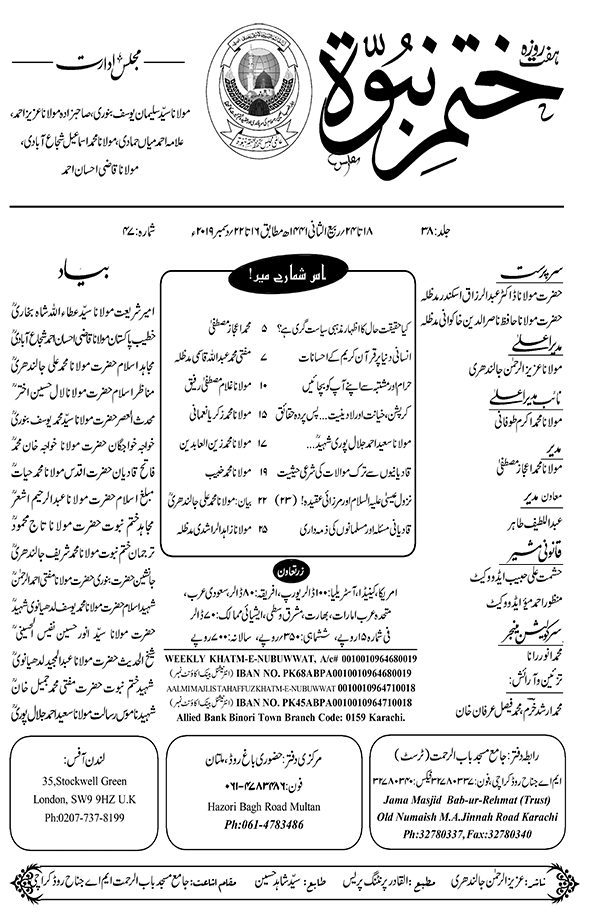 ہفت روزہ
ختم نبوۃ
مجلس ادارت
مولانا سید سلیمان یوسف بنوری، صاحبزادہ مولانا عزیز احمد،
علامہ احمد میاں حمادی، مولانا محمد اسماعیل شجاع آبادی،
مولانا قاضی احسان احمد
جلد: ۳۸
۱۸ تا ۲۴ / ربیع الثانی ۱۴۴۱ھ مطابق ۱۶ تا ۲۲ / دسمبر ۲۰۱۹ء
شمارہ: ۴۷
سرپرست
حضرت مولانا ڈاکٹر عبدالرزاق اسکندر مدظلہ
حضرت مولانا حافظ ناصر الدین خاکوانی مدظلہ
مدیر اعلیٰ
مولانا عزیز الرحمٰن جالندھری
نائب مدیر اعلیٰ
مولانا محمد اکرم طوفانی
مدیر
مولانا محمد اعجاز مصطفیٰ
معاون مدیر
عبداللطیف طاہر
قانونی مشیر
حشمت علی حبیب ایڈووکیٹ
منظور احمد میؤ ایڈووکیٹ
سرکولیشن منیجر
محمد انور رانا
تزئین و آرائش:
محمد ارشد خرم، محمد فیصل عرفان خان
اس شمارے میں!
کیا حقیقت حال کا اظہار مذہبی سیاست گری ہے؟ ۵ محمد اعجاز مصطفیٰ
انسانی دنیا پر قرآن کریم کے احسانات ۷ مفتی محمد عبداللہ قاسمی مدظلہ
حرام اور مشتبہ سے اپنے آپ کو بچائیں ۱۰ مولانا غلام مصطفیٰ رفیق
کرپشن، خیانت اور لادینیت... پس پردہ حقائق ۱۵ مولانا محمد زکریا نعمانی
مولانا سعید احمد جلال پوری شہیدؒ... ۱۷ مولانا محمد زین العابدین
قادیانیوں سے ترک موالات کی شرعی حیثیت ۱۹ مولانا محمد خبیب
نزول عیسیٰ علیہ السلام اور مرزائی عقیدہ! (۲۳) ۲۲ بیان: مولانا محمد علی جالندھریؒ
قادیانی مسئلہ اور مسلمانوں کی ذمہ داری ۲۵ مولانا زاہد الراشدی مدظلہ
زرتعاون
امریکا، کینیڈا، آسٹریلیا: ۱۰۰ ڈالر یورپ، افریقہ: ۸۰ ڈالر، سعودی عرب،
متحدہ عرب امارات، بھارت، مشرق وسطیٰ، ایشیائی ممالک: ۷۰ ڈالر
فی شمارہ ۱۵ روپے، ششماہی: ۳۵۰ روپے، سالانہ: ۷۰۰ روپے
WEEKLY KHATM-E-NUBUWWAT, A/c# 0010010964680019
IBAN NO. PK68ABPA0010010964680019 (انٹرنیشنل بینک اکاؤنٹ نمبر)
AALMIMAJLISTAHAFFUZKHATM-E-NUBUWWAT 0010010964710018
IBAN NO. PK45ABPA0010010964710018 (انٹرنیشنل بینک اکاؤنٹ نمبر)
Allied Bank Binori Town Branch Code: 0159 Karachi.
بیاد
امیر شریعت مولانا سید عطاء اللہ شاہ بخاریؒ
خطیب پاکستان مولانا قاضی احسان احمد شجاع آبادیؒ
مجاہد اسلام حضرت مولانا محمد علی جالندھریؒ
مناظر اسلام حضرت مولانا لال حسین اخترؒ
محدث العصر حضرت مولانا سید محمد یوسف بنوریؒ
خواجہ خواجگان حضرت مولانا خواجہ خان محمدؒ
فاتح قادیان حضرت اقدس مولانا محمد حیاتؒ
مبلغ اسلام حضرت مولانا عبدالرحیم اشعرؒ
مجاہد ختم نبوت حضرت مولانا تاج محمودؒ
ترجمان ختم نبوت حضرت مولانا محمد شریف جالندھریؒ
جانشین حضرت بنوری حضرت مولانا مفتی احمد الرحمٰنؒ
شہید اسلام حضرت مولانا محمد یوسف لدھیانوی شہیدؒ
حضرت مولانا سید انور حسین نفیس الحسینیؒ
شیخ الحدیث حضرت مولانا عبدالمجید لدھیانویؒ
شہید ختم نبوت حضرت مفتی محمد جمیل خانؒ
شہید ناموس رسالت مولانا سعید احمد جلال پوریؒ
رابطہ دفتر: جامع مسجد باب الرحمت (ٹرسٹ)
ایم اے جناح روڈ کراچی، فون: ۳۲۷۸۰۳۳۷ فیکس: ۳۲۷۸۰۳۴۰
Jama Masjid Bab-ur-Rehmat (Trust)
Old Numaish M.A.Jinnah Road Karachi
Ph:32780337, Fax:32780340
مرکزی دفتر: حضوری باغ روڈ، ملتان
فون: ۰۶۱-۴۷۸۳۴۸۶
Hazori Bagh Road Multan
Ph:061-4783486
لندن آفس:
35,Stockwell Green
London, SW9 9HZ U.K
Ph:0207-737-8199
ناشر: عزیز الرحمٰن جالندھری مطبع: القادر پرنٹنگ پریس طابع: سید شاہد حسین مقام اشاعت: جامع مسجد باب الرحمت ایم اے جناح روڈ کراچی